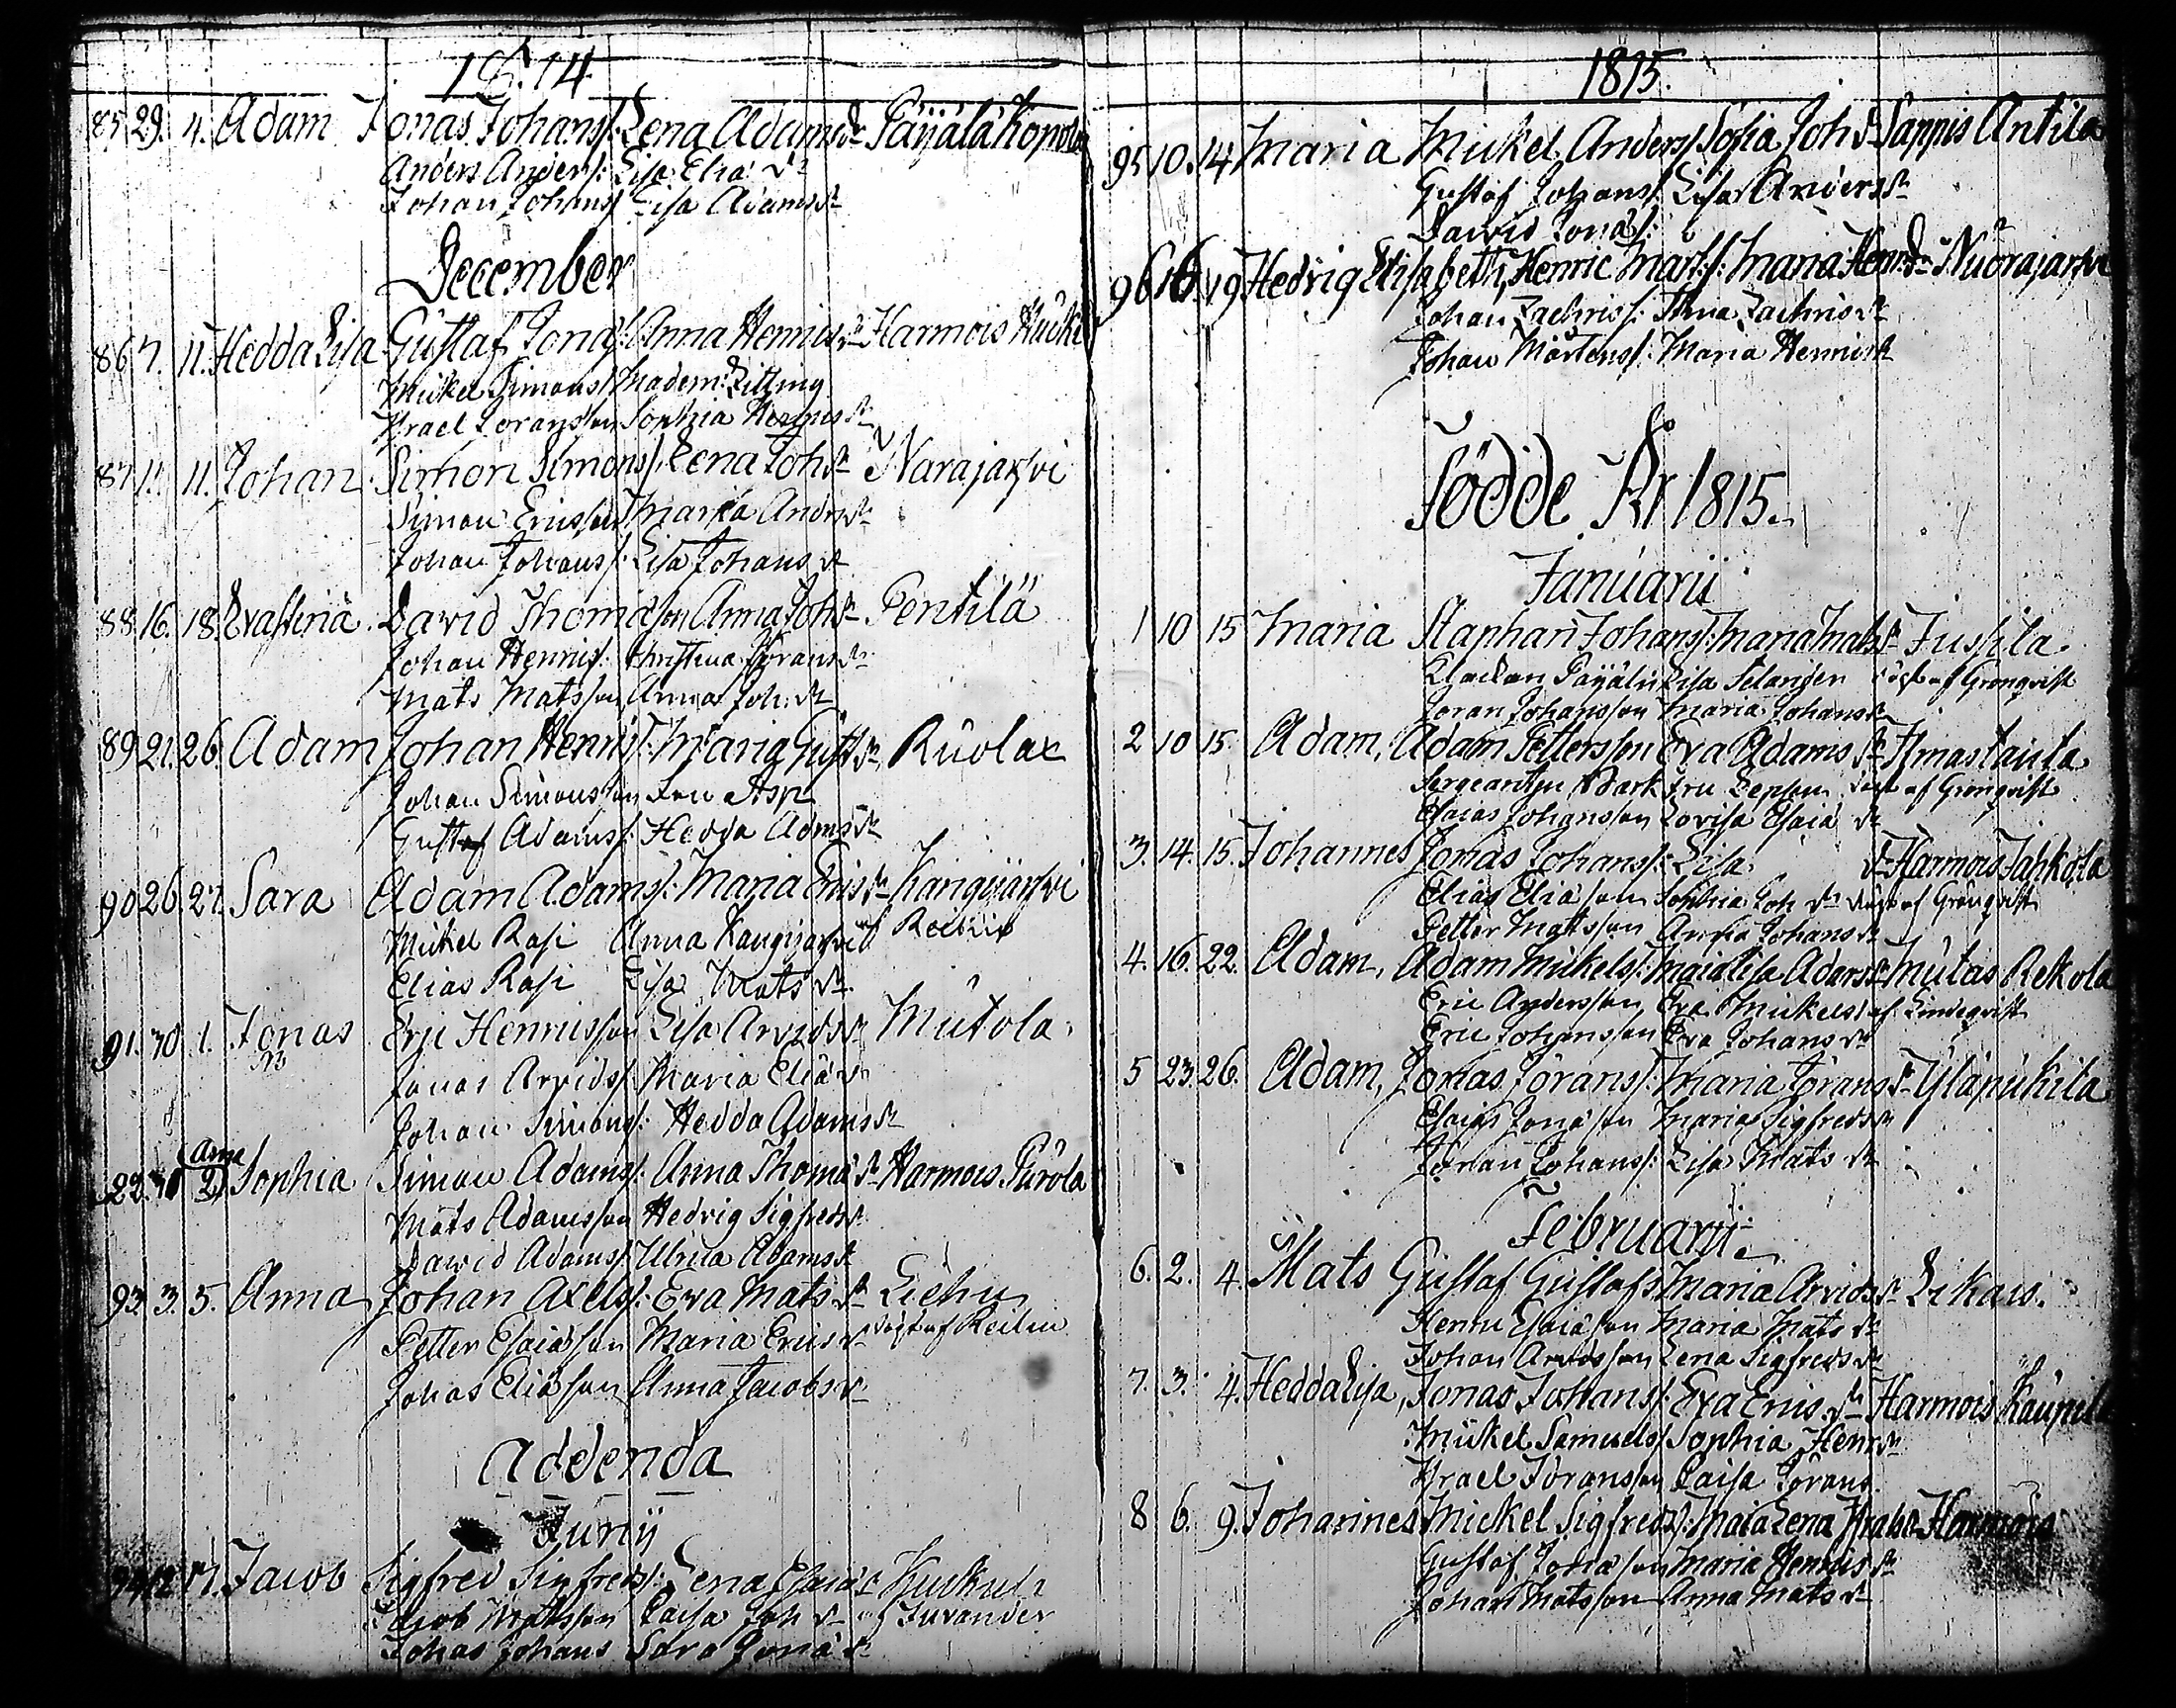 1814
85. 29. 4. Adam Jonas Johans/: Lena Adamsdr Päijälä Konola
Anders Anders/: Lisa Elia dr
Johan Johans/ Lisa Adamsdr
December
86 7. 11. Hedda Lisa Gustaf Jona/: Anna Henricsdr Harmois Kucki
Mickel Simons/ Madem: Zitting
Israel Joransson Sophia Henricsdr
87 11. 11. Johan Simon Simons/: Lena Joh dr Narajarfvi
Simon Ericsson Maria Andrsdr
Johan Johans/: Lisa Johans dr
88. 16. 18. Eva Stina David Thomasson Anna Johdr Pentilä
Johan Henrics/: Christina Joransdr
Mats Matsson Anna Joh: dr
89 21. 26. Adam Johan Henrics/: Maria Gust dr Ruolax
Johan Simonsson Fru Asp
Gustaf Adams/: Hedda Admsdr
90 26. 27. Sara Adam Adams/: Maria Ericsdr Kangijarfvi
Mickel Rasi Anna Kangijarfvi
Elias Rasi Lisa Mats dr
91. 30 1. Jonas Eric Henricsson Lisa Arvidsdr Mutola.
Jonas Arvids/: Maria Elia dr
Johan Simons/: Hedda Adamsdr
Anna
92. 30 2 Sophia Simon Adams/: Anna Thoma dr Harmois Purola
Mats Adamsson Hedvig Sigfredsdr
David Adams/: Ulrica Adamsdr
93. 3. 5. Anna Johan Axels/: Eva Mats dr Liehu
Petter Esaiasson Maria Erics dr döpt af Reilin
Johas Eliasson Anna Jacobsdr
Addenda
Junij
94 12 17. Jacob Sigfred Sigfreds/: Lena Esaiadr
Jacob Mathsson Caisa Joh dr af Juvander
Johas Johans Sara Jona dr
1815.
95 10. 14 Maria Mickel Anders/ Sofia Joh dr Sappis Antila
Gustaf Johans/: Lisa Andersdr
David Jona/:
96 16. 19 Hedvig Elisabeth, Henric Mart:/: Maria Henrdr Nuorajarfvi
Johan Zachris/: Anna Zachrisdr
Johan Mårtens/: Maria Henricsdr
Födde År 1815.
Januarii
1 10 15 Maria Staphan Johans/: Maria Matsdr Jussila.
Klackan Päijälä Lisa Selander döpt af Grönqvist
Joran Johansson Maria Johansdr
2 10 15. Adam, Adam Pettersson Eva Adams dr
Bark Fru döpt af Grönqvist
Esaias Johansson Lovisa Esaia dr
3. 14. 15. Johannes Jonas Johans/: Lisa dr Harmois Jahkola
Elias Eliasson Sophia Joh dr döpt af Grönqvist
Petter Matsson Anna Johansdr
4. 16. 22. Adam, Adam Mickels/: Maia Lisa Adamsdr Mutas Rekola
Eric Andersson Eva Mickelsd af Lindeqvist
Eric Johansson Eva Johansdr
5 23. 26. Adam, Jonas Jörans/: Maria Jöransdr Yläpukila
Esaias Jonasson Maria Sigfredsdr
Johan Johans/: Lisa Mats dr
Februarii.
6. 2. 4. Mats Gustaf Gustafs Maria Arvidsdr Likais.
Henric Esaiasson Maria Mats dr
Johan Arvidsson Lena Sigfredsdr
7. 3. 4. Hedda Lisa, Jonas Johans/ Eva Erics dr Harmois Kaupila
Mickel Samuels/ Sophia Henrdr
Israel Joransson Caisa Jörans
8 6. 9. Johannes Mickel Sigfreds/: Maia Lena Harmois
Gustaf Jonasson Maria Henricsdr
Johan Matsson Anna Mats dr